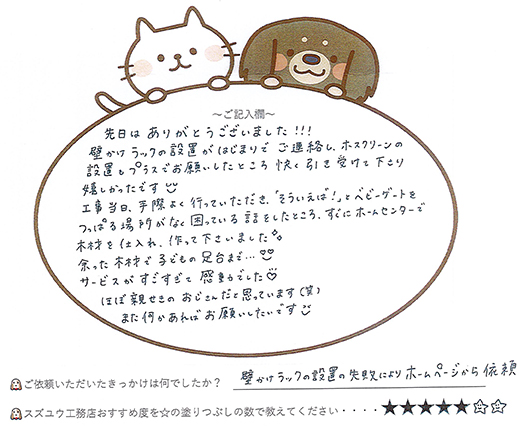 ～ご記入欄～
先日は ありがとうございました!!!
壁かけ ラックの設置がはじまりで ご連絡し、ホスクリーンの
設置もプラスでお願いしたところ 快く引き受けて下さり
嬉しかったです
工事当日、手際よく行っていただき、「そういえば!」とベビーゲートを
つっぱる場所がなく困っている話をしたところ、すぐにホームセンターで
木材を仕入れ、作って下さいました
余った木材で子どもの足台まで…
サービスがすごすぎて 感動でした♡
ほぼ親せきの おじさんだと思っています(笑)
また何かあればお願いしたいです
ご依頼いただいたきっかけは何でしたか？ 壁かけラックの設置の失敗によりホームページから依頼
スズユウ工務店おすすめ度を☆の塗りつぶしの数で教えてください・・・・★★★★★☆☆